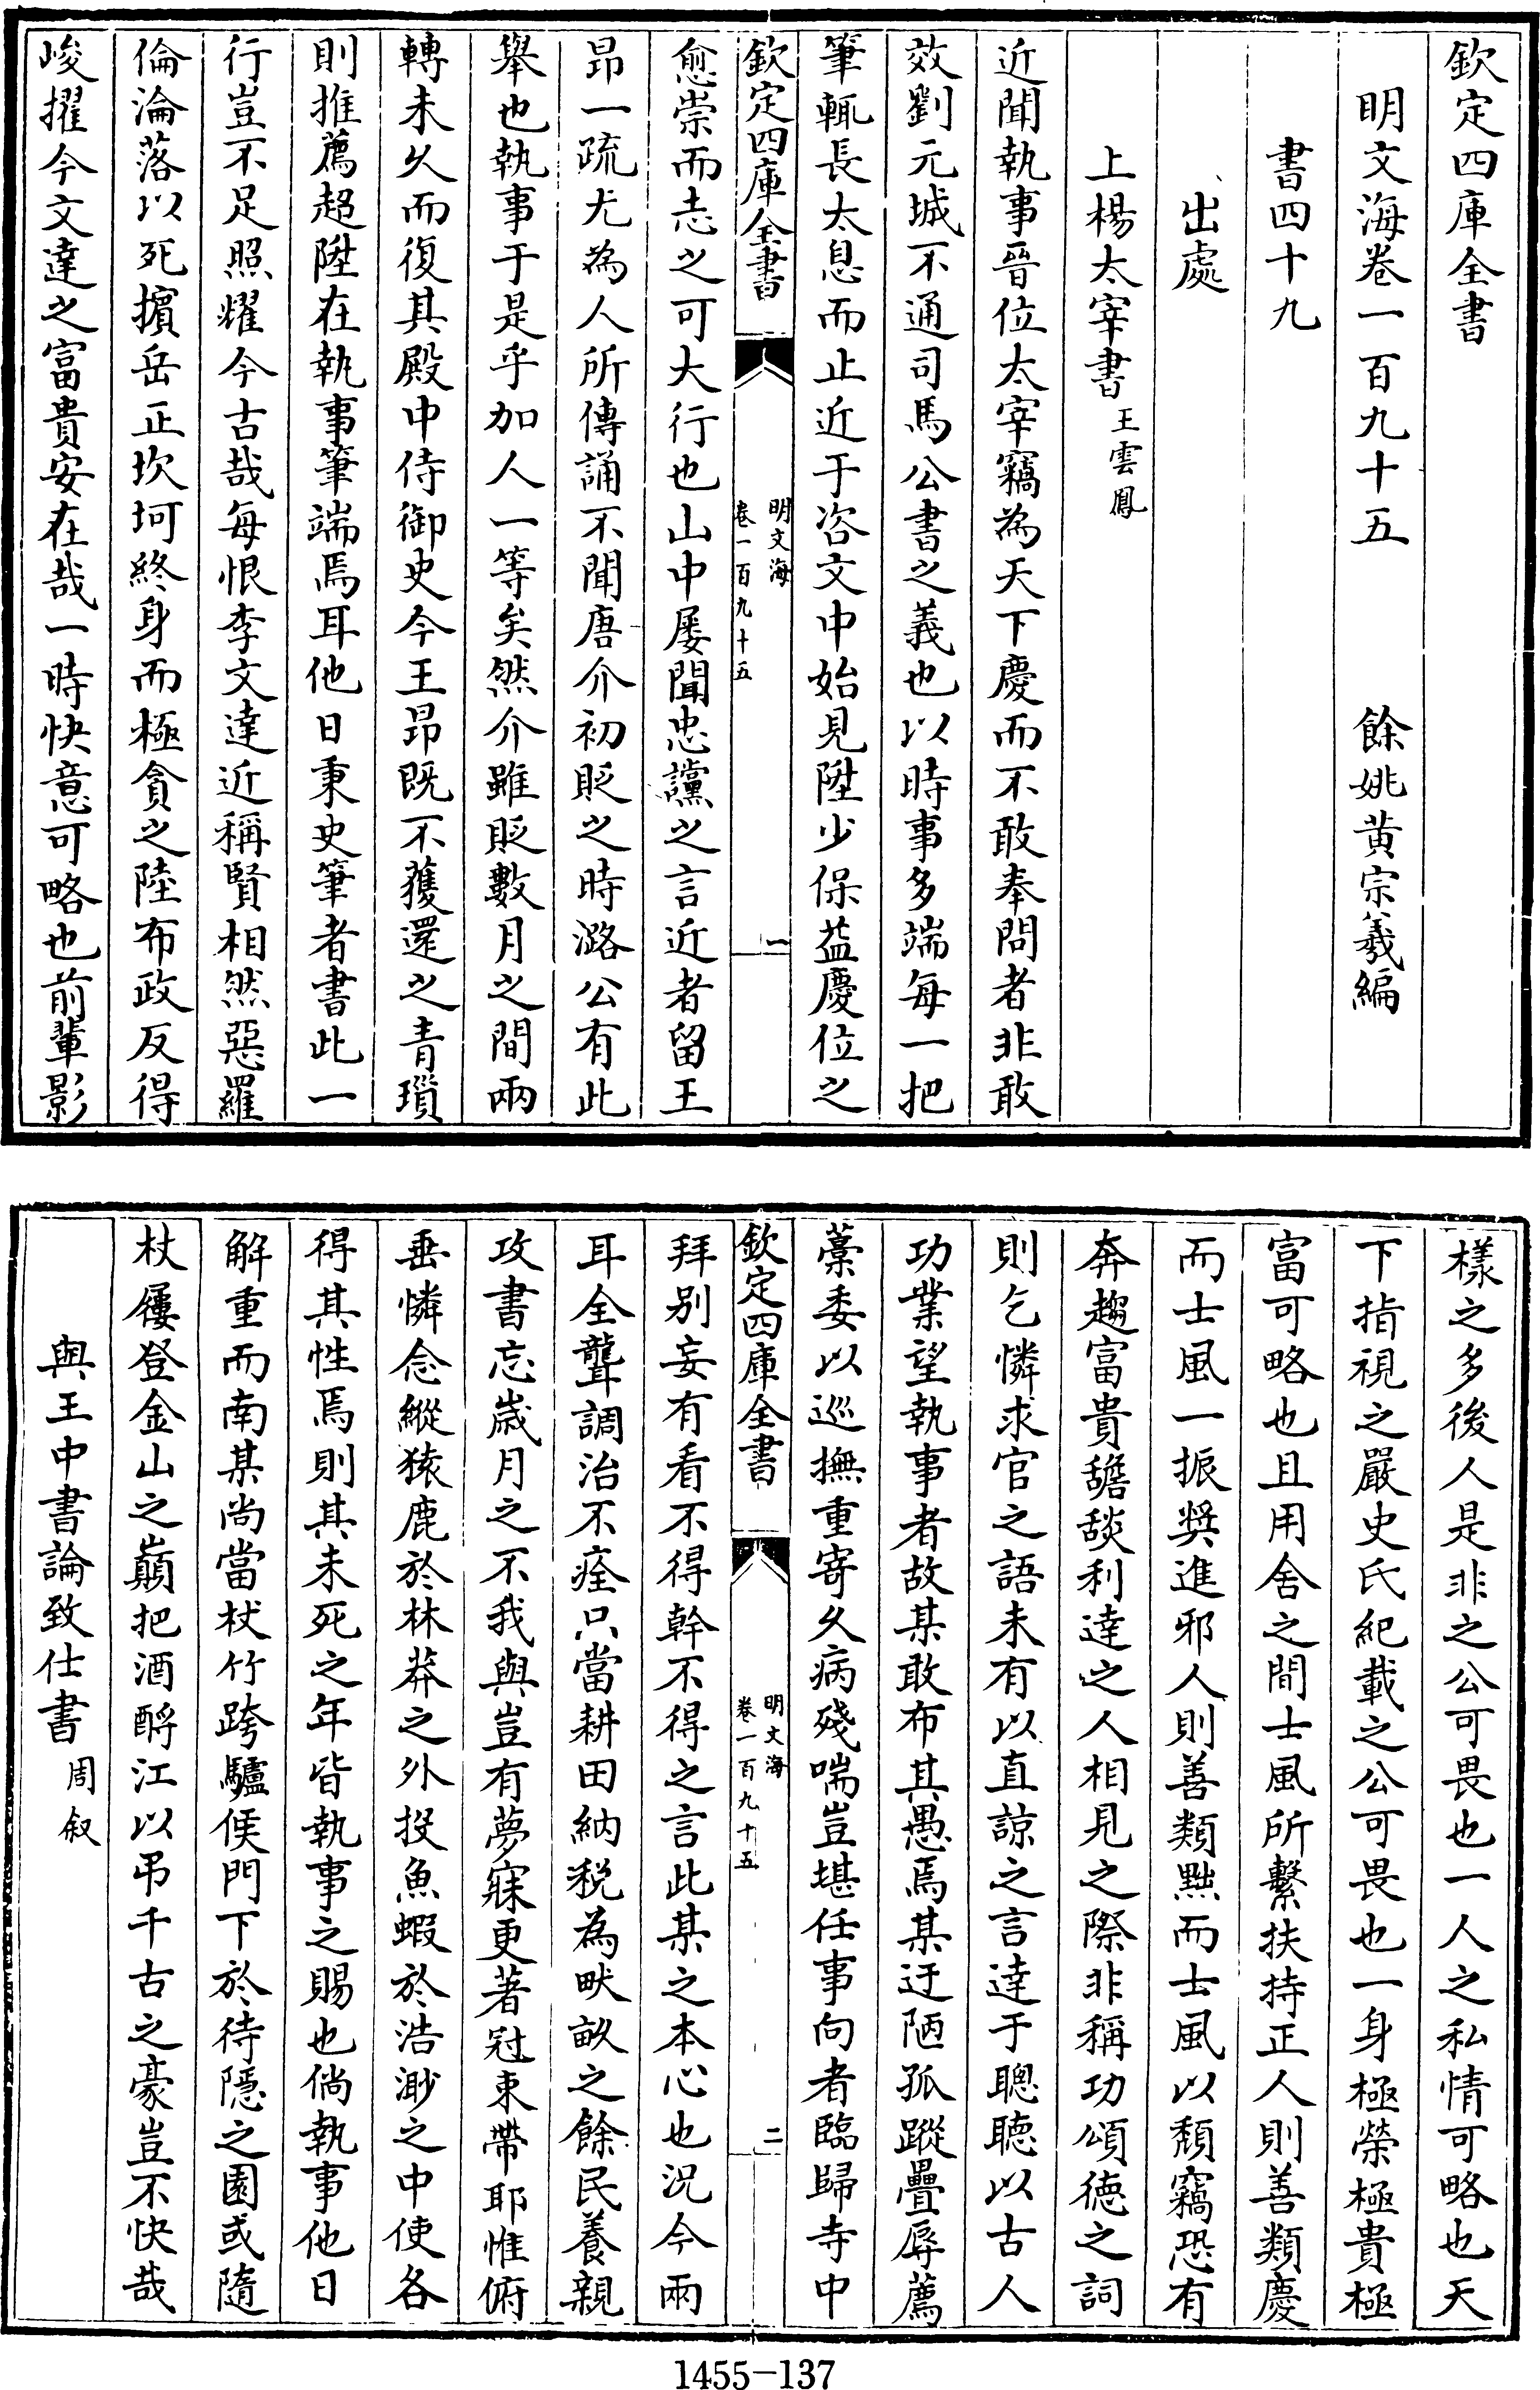 欽定四庫全書
明文海卷一百九十五　餘姚黃宗羲編
書四十九
出處
上楊太宰書王雲鳳
近聞執事晉位太宰竊為天下慶而不敢奉問者非敢
效劉元城不通司馬公書之義也以時事多端每一把
筆輒長太息而止近于咨文中始見陞少保益慶位之
欽定四庫全書
明文海
卷一百九十五
一
愈崇而志之可大行也山中屡聞忠讜之言近者留王
昂一疏尤為人所傳誦不聞唐介初貶之時潞公有此
舉也執事于是乎加人一等矣然介雖貶數月之間兩
轉未久而復其殿中侍御史今王昂既不獲還之青瑣
則推薦超陞在執事筆端焉耳他日秉史筆者書此一
行豈不足照耀今古哉每恨李文達近稱賢相然惡羅
倫淪落以死擯岳正坎坷終身而極貪之陸布政反得
峻擢今文達之富貴安在哉一時快意可略也前輩影
樣之多後人是非之公可畏也一人之私情可略也天
下指視之嚴史氏紀載之公可畏也一身極榮極貴極
富可略也且用舍之間士風所繫扶持正人則善類慶
而士風一振奬進邪人則善類黜而士風以頹竊恐有
奔趨富貴饞餤利達之人相見之際非稱功頌德之詞
則乞憐求官之語未有以直諒之言達于聰聽以古人
功業望執事者故某敢布其愚焉某迂陋孤蹤疊辱薦
藁委以巡撫重寄久病殘喘豈堪任事向者臨歸寺中
欽定四庫全書
明文海
卷一百九十五
二
拜別妄有看不得幹不得之言此某之本心也況今兩
耳全聾調治不痊只當耕田納稅為畎畝之餘民養親
攻書忘歲月之不我與豈有夢寐更著冠束帶耶惟俯
垂憐念縱猿鹿於林莽之外投魚蝦於浩渺之中使各
得其性焉則其未死之年皆執事之賜也倘執事他日
解重而南某尚當杖竹跨驢侯門下於待隱之園或隨
杖屨登金山之巔把酒酹江以弔千古之豪豈不快哉
與王中書論致仕書周叙
1455-137